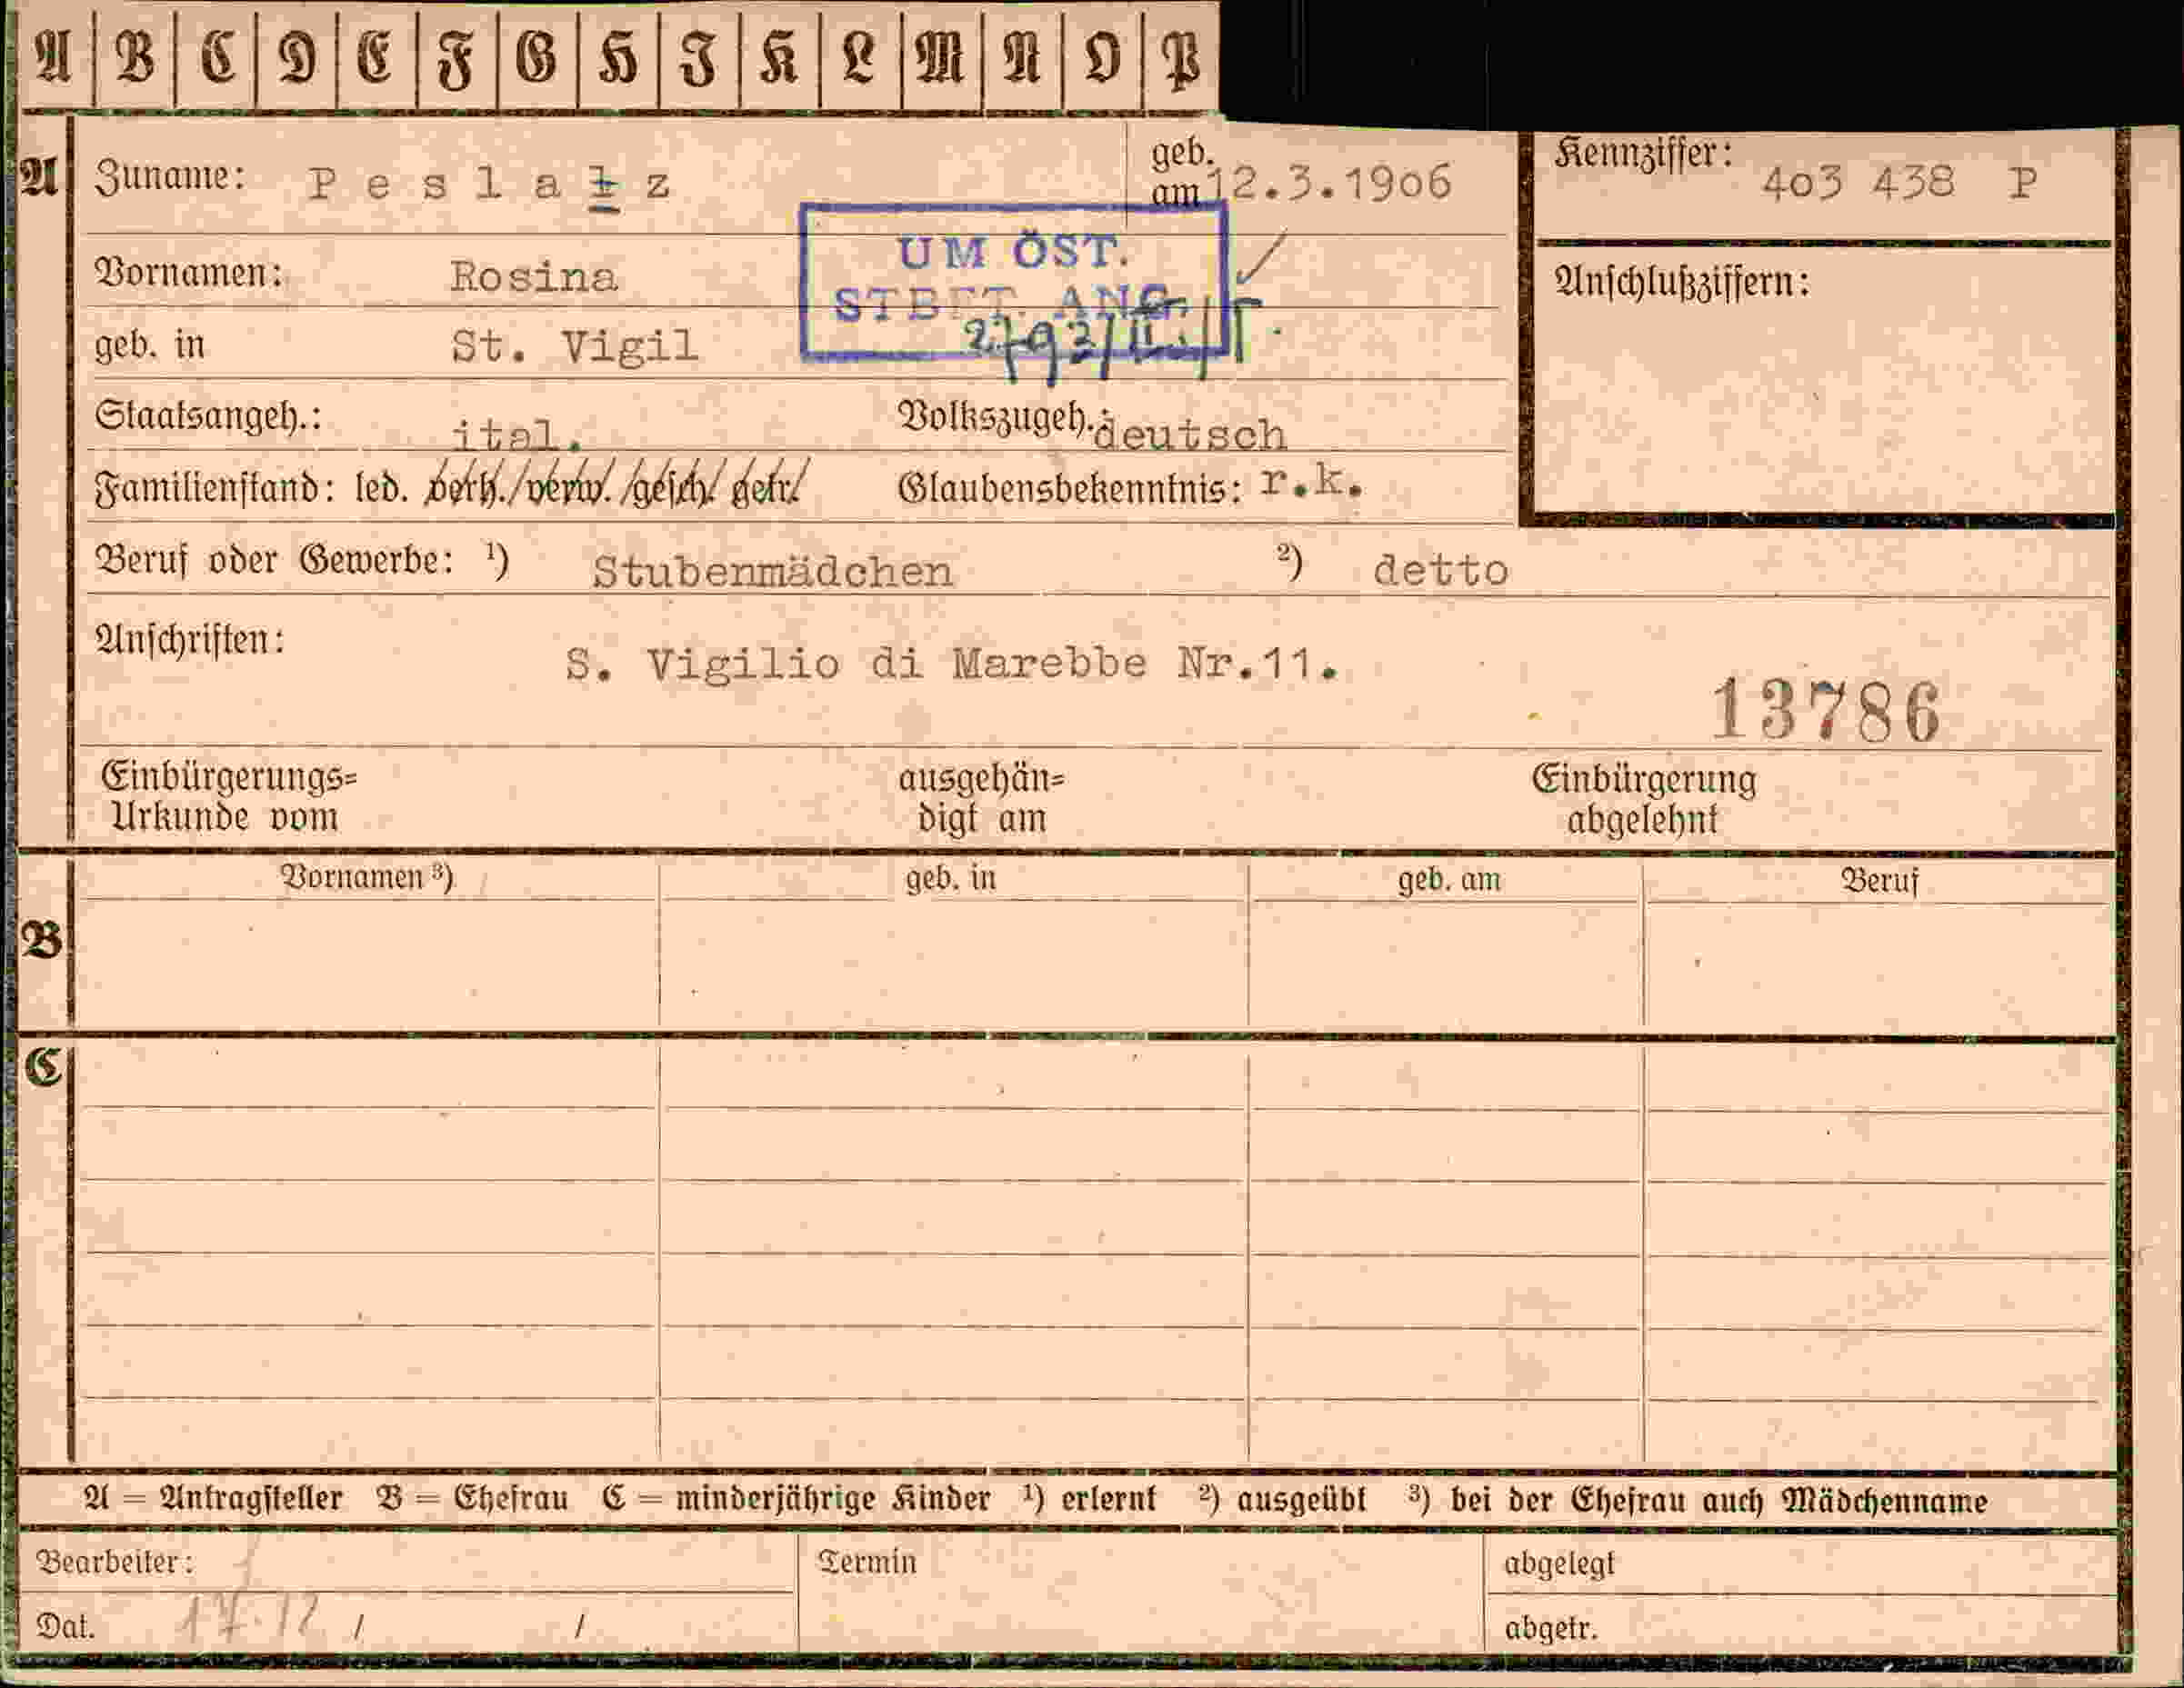 A B C D E F G H I K L M N O P
A Zuname: Peslalz geb. am 12.3.1906 Kennziffer: 403 438 P
UM ÖST.
Vornamen: Rosina Anschlußziffern:
STBFT. ANG.
geb. in St. Vigil
Staatsangeh.: ital. Volkszugeh.: deutsch
Familienstand: led. verh./verw./gesch/ getr/ Glaubensbekenntnis: r.k.
Beruf oder Gewerbe: ¹) Stubenmädchen ²) detto
Anschriften: S. Vigilio di Marebbe Nr.11.
13786
Einbürgerungs= ausgehän= Einbürgerung
Urkunde vom digt am abgelehnt
Vornamen ³) geb. in geb. am Beruf
B
C
A = Antragsteller B = Ehefrau C = minderjährige Kinder ¹) erlernt ²) ausgeübt ³) bei der Ehefrau auch Mädchenname
Bearbeiter: Termin abgelegt
Dat. 17.12 / / abgetr.